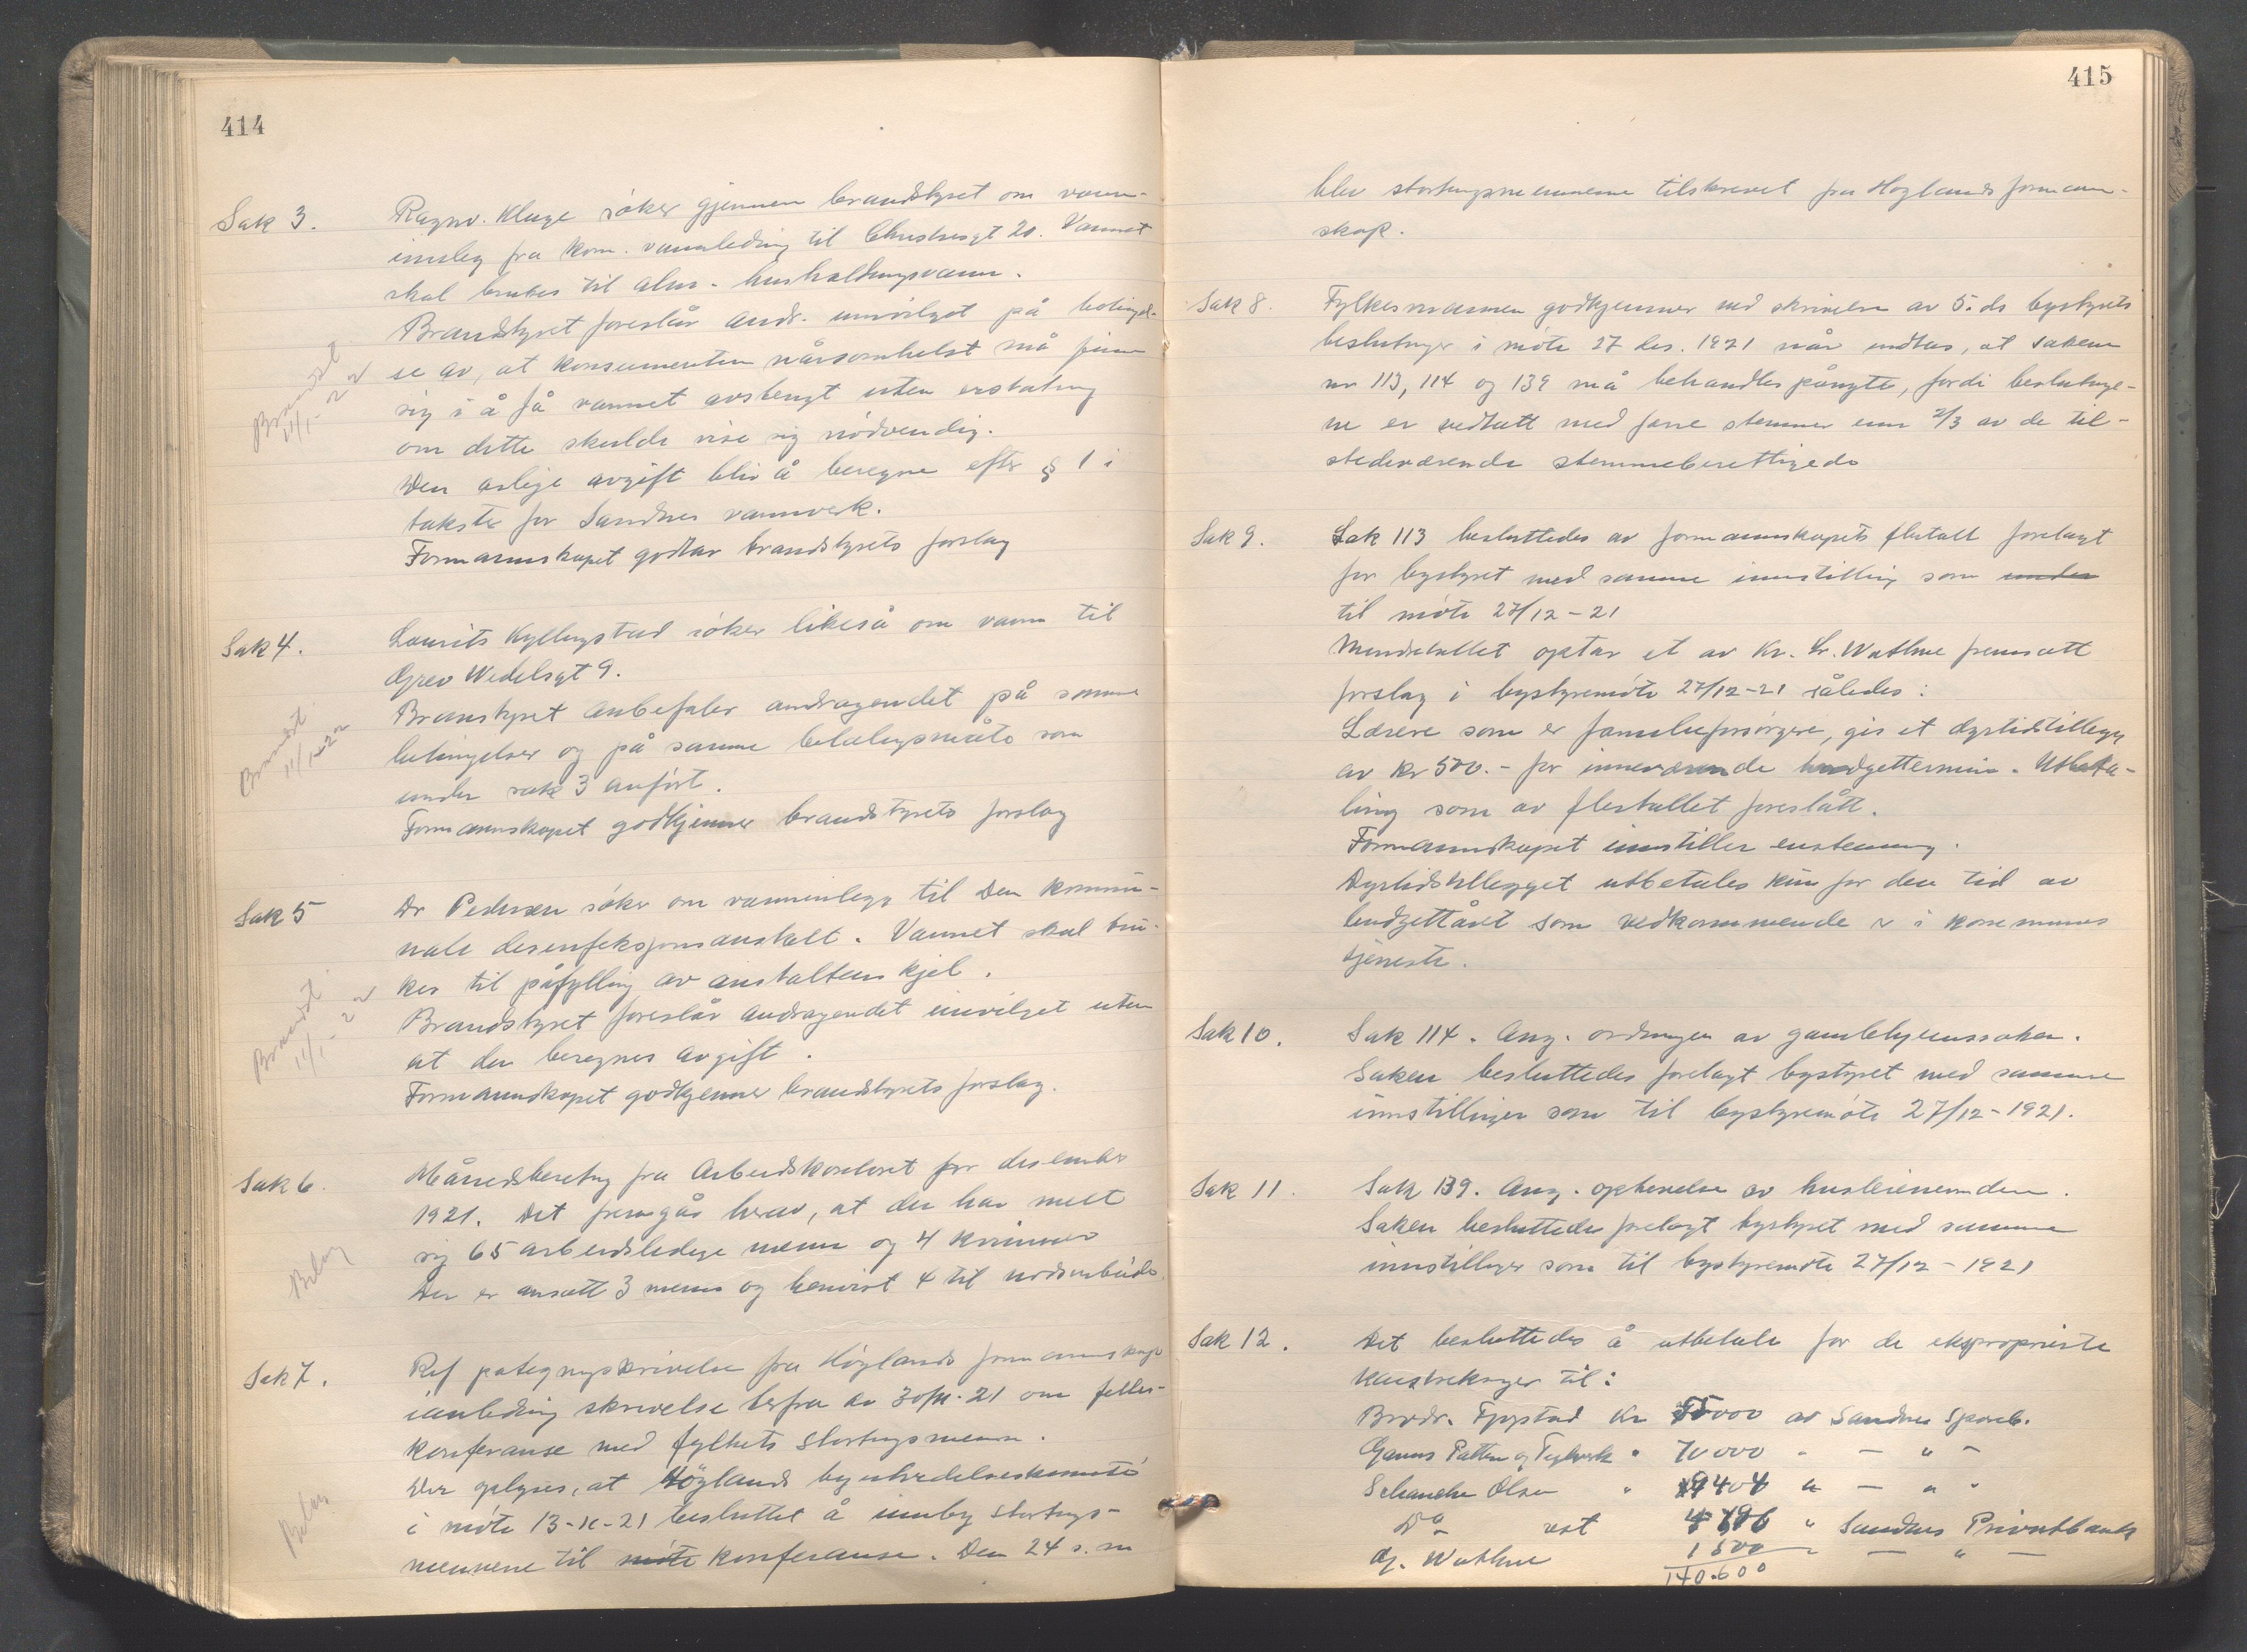 414
Sak 3. Ragnv. Kluge søker gjennem brandstyret om vann-
innleg fra kom. vannledning til Christiesgt 20. Vannet
skal brukes til alm. husholdningsvann.
Brandstyret foreslår andr. innvilget på betingel-
se av, at konsumenten nårsomhelst må finne
sig i å få vannet avstengt uten erstatning
om dette skulde vise sig nødvendig.
Den årlige avgift blir å beregne efter § 1 i
takster for Sandnes vannverk.
Formannskapet godtar brandstyrets forslag
Brandst. 11/1-22
Sak 4. Laurits Kyllingstad søker likeså om vann til
Grev Wedelsgt 9.
Branstyret anbefaler andragendet på samme
betingelser og på samme betalingsmåte som
under sak 3 anført.
Formannskapet godkjenner brandstyrets forslag
Brandst. 11/1-22
Sak 5 Dr Pedersen søker om vanninlegg til Den kommu-
nale desinfeksjonsanstalt. Vannet skal bru-
kes til påfylling av anstaltens kjel.
Brandstyret foreslår andragendet innvilget uten
at der beregnes avgift.
Formannskapet godkjenner brandstyrets forslag.
Brandst. 11/1-22
Sak 6. Månedsberetng fra Arbeidskontoret for desember
1921. Det fremgår herav, at der har melt
sig 65 arbeidsledige menn og 4 kvinner
Der er ansatt 3 menn og henvist 4 til nødsarbeide.
Bilag
Sak 7. Ref påtegningsskrivelse fra Høylands formannskap
i anledning skrivelse herfra av 30/11-21 om felles-
konferanse med fylkets stortingsmenn.
Der oplyses, at Høylands byutvidelseskomité
i møte 13-12-21 besluttet å innby stortings-
mennene til møte konferanse. Den 24 s. m
Bilag
415
blev stortingsmennene tilskrevet fra Høylands formann-
skap.
Sak 8. Fylkesmannen godkjenner ved skrivelse av 5. ds bystyrets
beslutninger i møte 27 des. 1921 når undtas, at sakene
nr 113, 114 og 139 må behandles pånytt, fordi beslutninge-
ne er vedtatt med færre stemmer enn 2/3 av de til-
stedeværende stemmeberettigede
Sak 9. Sak 113 besluttedes av formannskapets flertall forelagt
for bystyret med samme innstilling som under
til møte 27/12-21
Mindretallet optar et av Kr. Lr. Wathne fremsatt
forslag i bystyremøte 27/12-21 således:
Lærere som er familieforsørgere, gis et dyrtidstillegg
av kr 500.- for inneværende budgettermin. Utbeta-
ling som av flertallet foreslått.
Formannskapet innstiller enstemmig.
Dyrtidstillegget utbetales kun for den tid av
budgettåret som vedkommende er i kommunens
tjeneste.
Sak 10. Sak 114. Ang. ordningen av gamlehjemssaken.
Saken besluttedes forelagt bystyret med samme
innstillinger som til bystyremøte 27/12-1921.
Sak 11. Sak 139. Ang. ophevelse av husleienemnden.
Saken besluttedes forelagt bystyret med samme
innstillinger som til bystyremøte 27/12-1921
Sak 12. Det besluttedes å utbetale for de eksproprierte
strekninger til:
Brødr. Fjogstad Kr 55000 av Sandnes Spareb.
Ganns Potteri og Teglverk " 70000 " - " -
Schanche Olsen " 9404 " - " "
Do rest 4796 " Sandnes Privatbank
G. Wathne 1500 - " -
140.600